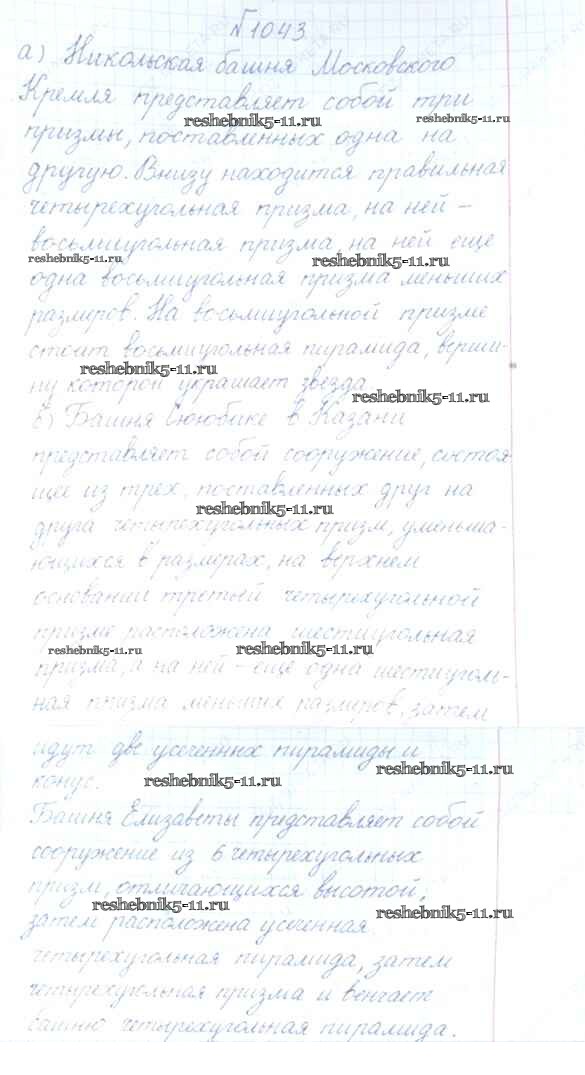 №1043
а) Никольская башня Московского
Кремля представляет собой три
reshebnik5-11.ru
reshebnik5-11.ru
призмы, поставленных одна на
другую. Внизу находится правильная
четырехугольная призма, на ней –
восьмиугольная призма, на ней еще
reshebnik5-11.ru
reshebnik5-11.ru
одна восьмиугольная призма меньших
размеров. На восьмиугольной призме
стоит восьмиугольная пирамида, верши-
reshebnik5-11.ru
ну которой украшает звезда.
reshebnik5-11.ru
б) Башня Сююбике в Казани
представляет собой сооружение, состоя
щее из трех, поставленных друг на
reshebnik5-11.ru
друга четырехугольных призм, уменьша-
ющихся в размерах, на верхнем
основании третьей четырехугольной
призме расположена шестиугольная
reshebnik5-11.ru
reshebnik5-11.ru
призма, а на ней – еще одна шестиуголь-
ная призма меньших размеров, затем
идут две усеченных пирамиды и
reshebnik5-11.ru
конус.
reshebnik5-11.ru
Башня Елизаветы представляет собой
сооружение из 6 четырехугольных
призм, отличающихся высотой,
reshebnik5-11.ru
reshebnik5-11.ru
затем расположена усеченная
четырехугольная пирамида, затем
четырехугольная призма и венчает
башню четырехугольная пирамида.